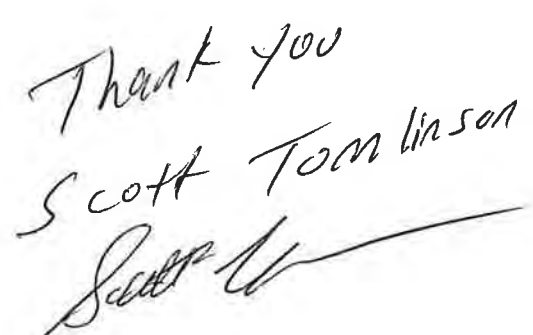 Thank you
Scott Tomlinson
Scott